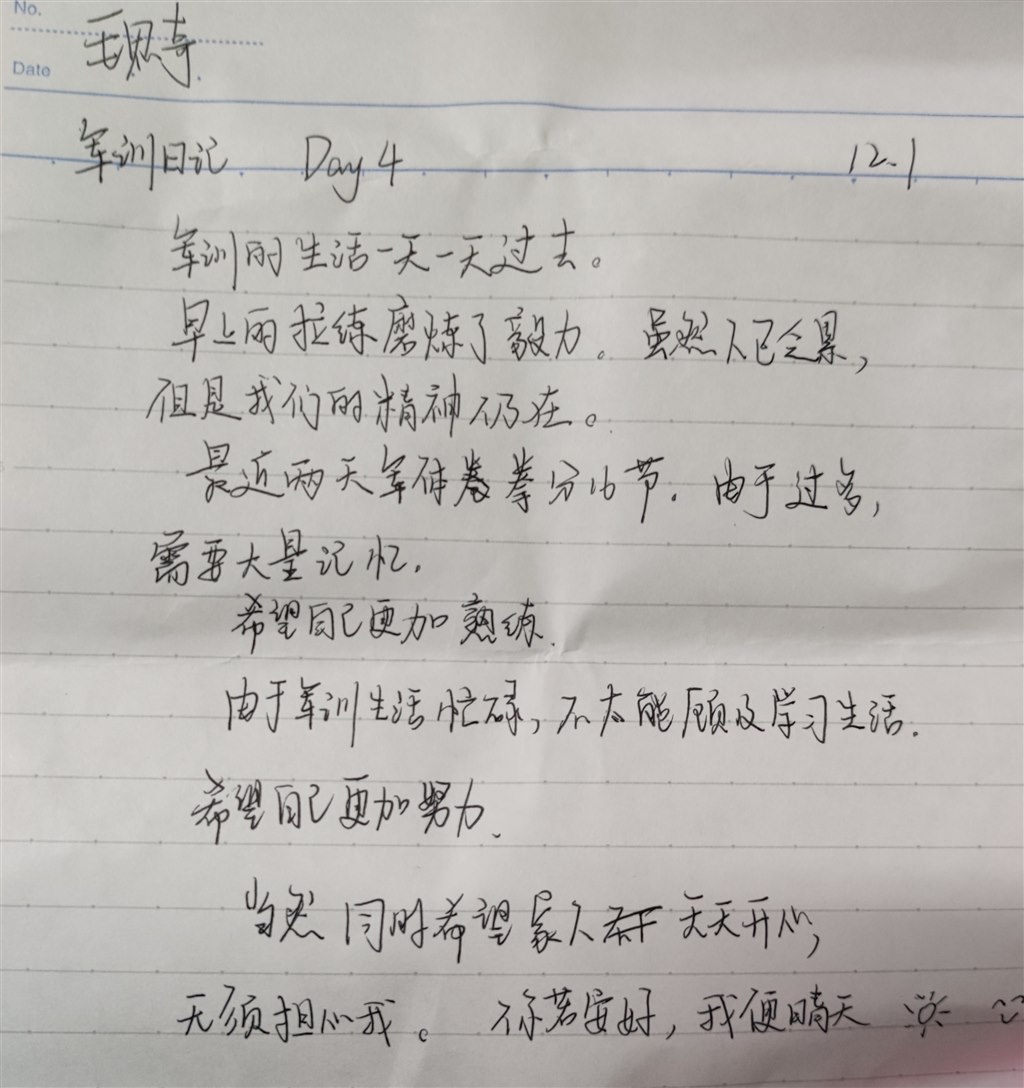 No.
Date
军训日记 Day 4 12.1
军训的生活一天一天过去。
早上的拉练磨炼了毅力。虽然人已会累,
但是我们的精神仍在。
最近两天军体拳分小节. 由于过多,
需要大量记忆.
希望自己更加熟练.
由于军训生活忙碌, 不太能顾及学习生活.
希望自己更加努力.
当然同时希望家人天天开心,
无须担心我。 你若安好, 我便晴天